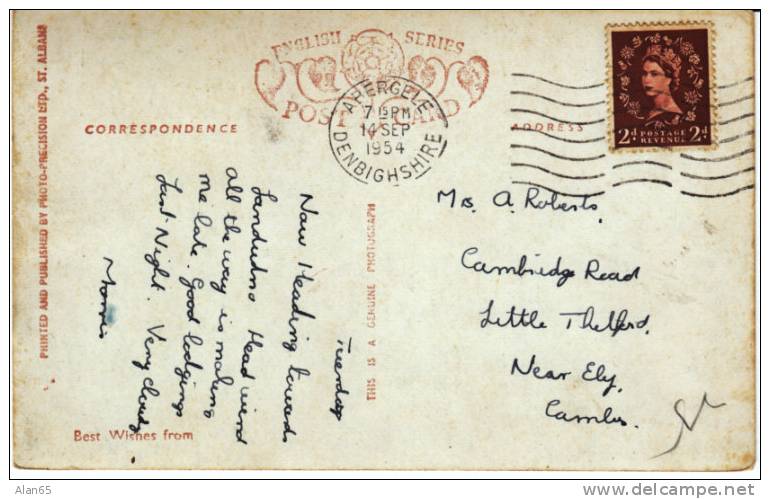 ENGLISH SERIES
POST CARD
ABERGELE
7 15 PM
14 SEP
1954
DENBIGHSHIRE
2d POSTAGE REVENUE 2d
CORRESPONDENCE
ADDRESS
PRINTED AND PUBLISHED BY PHOTO-PRECISION LTD., ST. ALBANS
THIS IS A GENUINE PHOTOGRAPH
Tuesday
Now Heading towards
Landudno Head wind
all the way is making
me late. Good lodgings
Last Night. Very cloudy
Morris
Best Wishes from
Mrs. A. Roberts,
Cambridge Road
Little Thetford,
Near Ely,
Cambs.
Alan65
delcampe.net